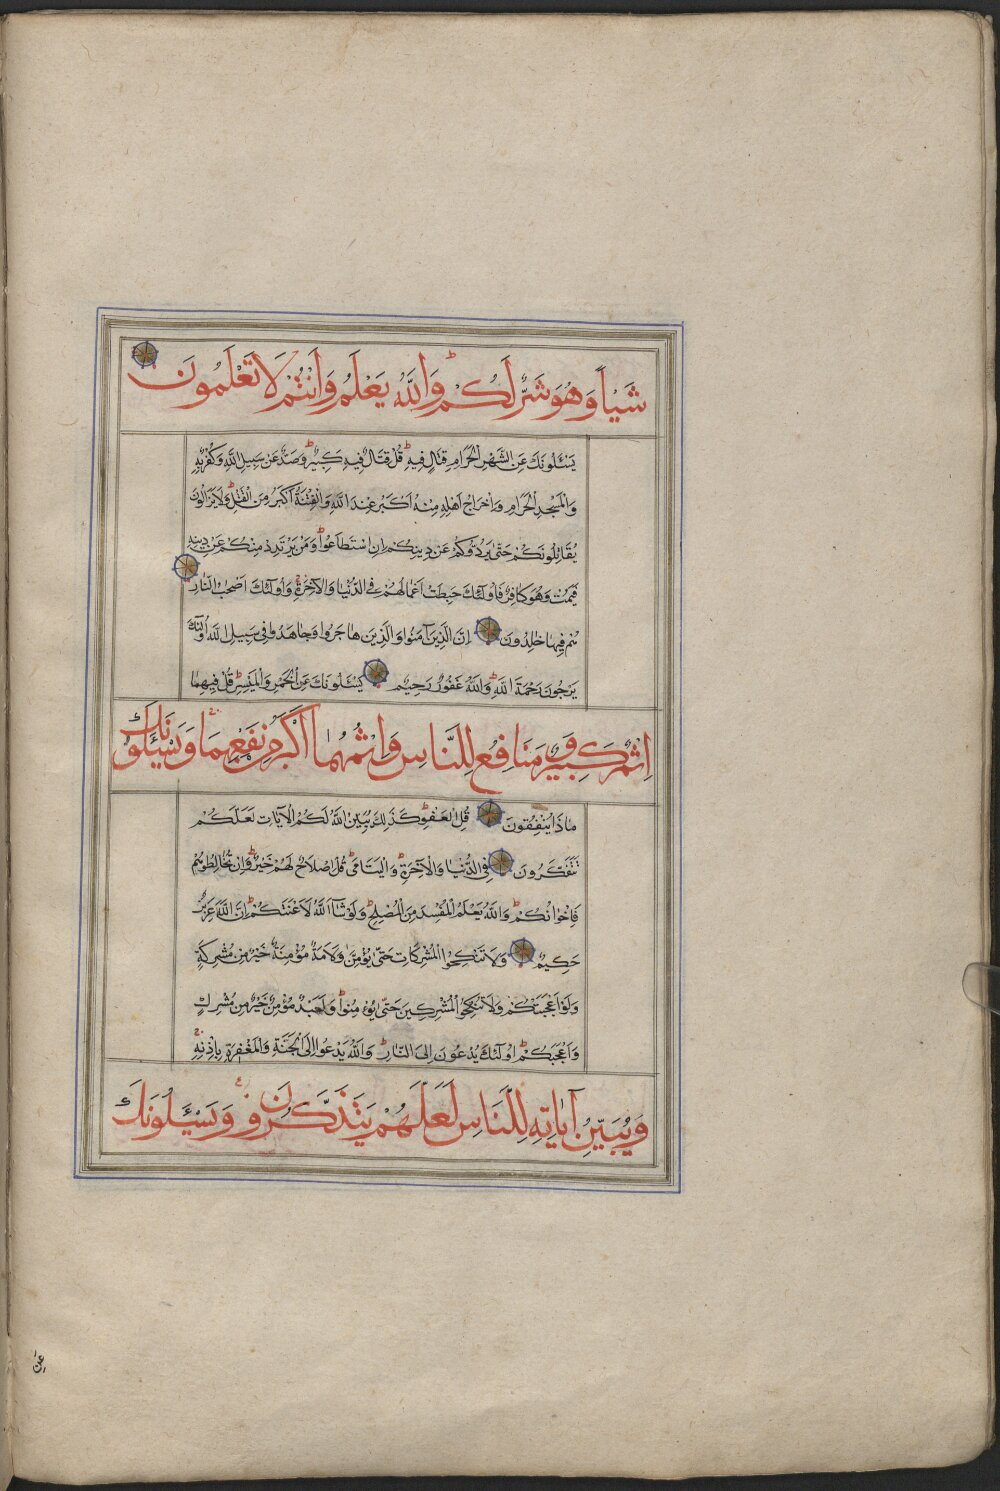 شَيْاً وَهُوَ شَرٌّ لَكُمْ ط وَاللّٰهُ يَعْلَمُ وَاَنْتُمْ لَا تَعْلَمُونَ
يَسْئَلُونَكَ عَنِ الشَّهْرِ الْحَرَامِ قِتَالٍ فِيهِ ط قُلْ قِتَالٌ فِيهِ كَبِيرٌ ط وَصَدٌّ عَنْ سَبِيلِ اللّٰهِ وَكُفْرٌ بِهِ
وَالْمَسْجِدِ الْحَرَامِ وَاِخْرَاجُ اَهْلِهِ مِنْهُ اَكْبَرُ عِنْدَ اللّٰهِ وَالْفِتْنَةُ اَكْبَرُ مِنَ الْقَتْلِ ط وَلَا يَزَالُونَ
يُقَاتِلُونَكُمْ حَتّٰى يَرُدُّوكُمْ عَنْ دِينِكُمْ اِنِ اسْتَطَاعُوا ط وَمَنْ يَرْتَدِدْ مِنْكُمْ عَنْ دِينِهِ
فَيَمُتْ وَهُوَ كَافِرٌ فَاُولٰئِكَ حَبِطَتْ اَعْمَالُهُمْ فِى الدُّنْيَا وَالْآخِرَةِ وَاُولٰئِكَ اَصْحَابُ النَّارِ
هُمْ فِيهَا خَالِدُونَ اِنَّ الَّذِينَ آمَنُوا وَالَّذِينَ هَاجَرُوا وَجَاهَدُوا فِى سَبِيلِ اللّٰهِ اُولٰئِكَ
يَرْجُونَ رَحْمَةَ اللّٰهِ ط وَاللّٰهُ غَفُورٌ رَحِيمٌ يَسْئَلُونَكَ عَنِ الْخَمْرِ وَالْمَيْسِرِ ط قُلْ فِيهِمَا
اِثْمٌ كَبِيرٌ وَمَنَافِعُ لِلنَّاسِ وَاِثْمُهُمَا اَكْبَرُ مِنْ نَفْعِهِمَا وَيَسْئَلُونَكَ
مَاذَا يُنْفِقُونَ قُلِ الْعَفْوَ ط كَذٰلِكَ يُبَيِّنُ اللّٰهُ لَكُمُ الْآيَاتِ لَعَلَّكُمْ
تَتَفَكَّرُونَ فِى الدُّنْيَا وَالْآخِرَةِ ط وَالْيَتَامٰى ط قُلْ اِصْلَاحٌ لَهُمْ خَيْرٌ ط وَاِنْ تُخَالِطُوهُمْ
فَاِخْوَانُكُمْ ط وَاللّٰهُ يَعْلَمُ الْمُفْسِدَ مِنَ الْمُصْلِحِ ط وَلَوْ شَآءَ اللّٰهُ لَاَعْنَتَكُمْ ط اِنَّ اللّٰهَ عَزِيزٌ
حَكِيمٌ وَلَا تَنْكِحُوا الْمُشْرِكَاتِ حَتّٰى يُؤْمِنَّ ط وَلَاَمَةٌ مُؤْمِنَةٌ خَيْرٌ مِنْ مُشْرِكَةٍ
وَلَوْ اَعْجَبَتْكُمْ وَلَا تُنْكِحُوا الْمُشْرِكِينَ حَتّٰى يُؤْمِنُوا ط وَلَعَبْدٌ مُؤْمِنٌ خَيْرٌ مِنْ مُشْرِكٍ
وَاَعْجَبَكُمْ ط اُولٰئِكَ يَدْعُونَ اِلَى النَّارِ ط وَاللّٰهُ يَدْعُوا اِلَى الْجَنَّةِ وَالْمَغْفِرَةِ بِاِذْنِهِ
وَيُبَيِّنُ آيَاتِهِ لِلنَّاسِ لَعَلَّهُمْ يَتَذَكَّرُونَ وَيَسْئَلُونَكَ
عَنِ